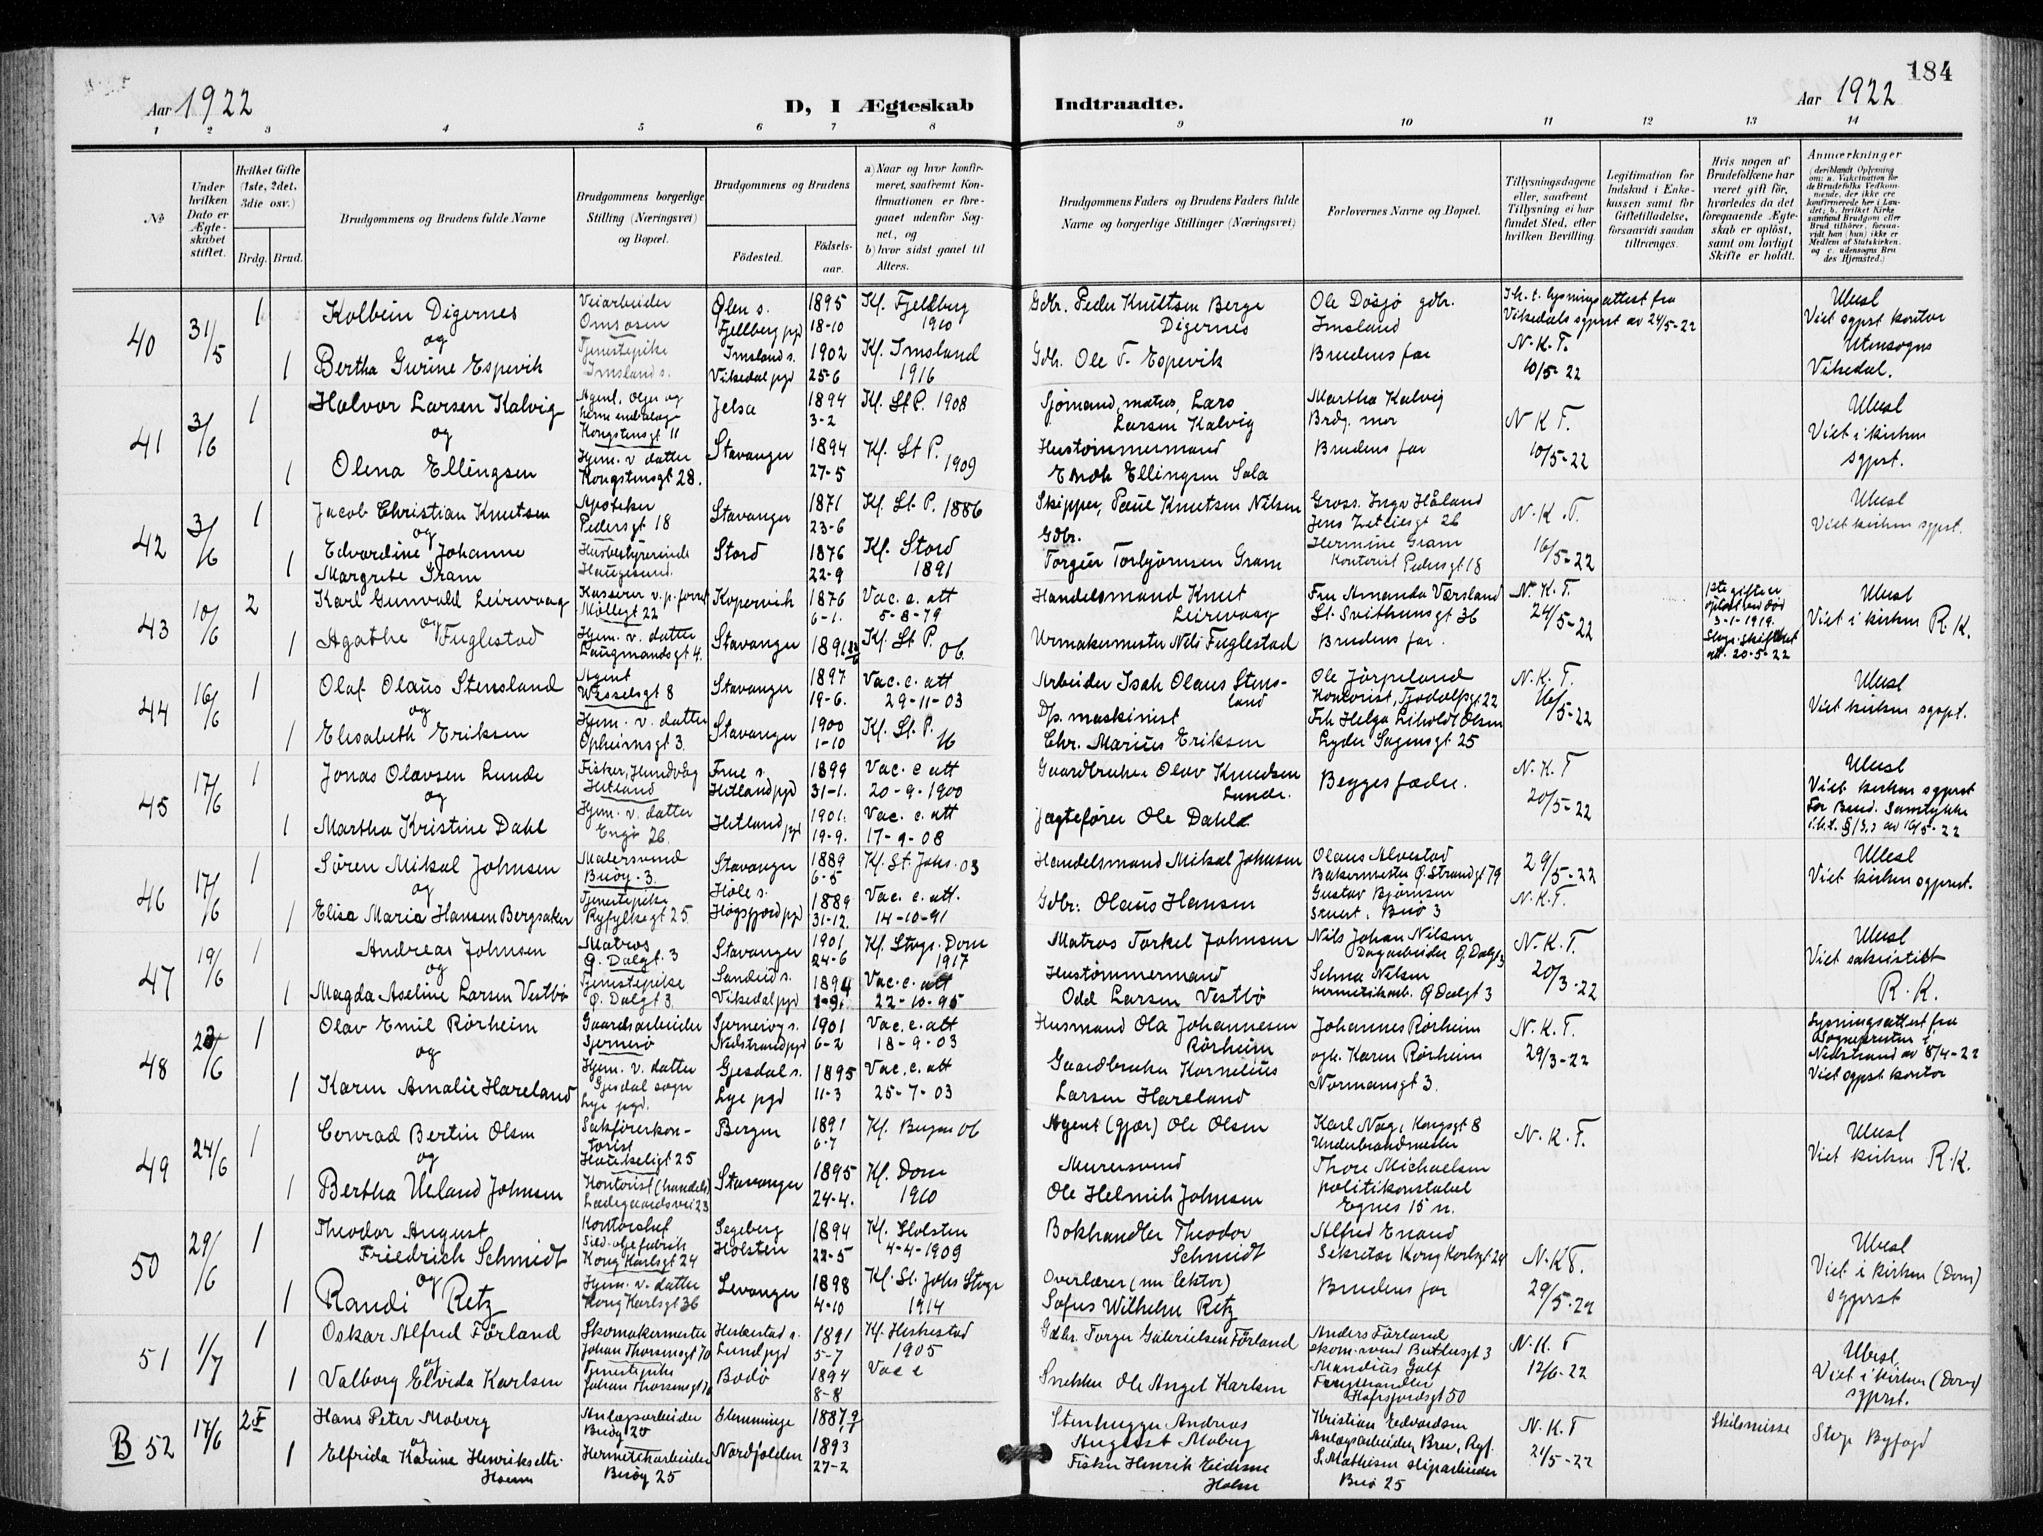 184
Aar 1922
D, I Ægteskab Indtraadte.
Aar 1922
1 2 3 4 5 6 7 8 9 10 11 12 13 14
No
Under hvilken Dato er Ægteskabet stiftet.
Hvilket Gifte (1ste, 2det, 3die osv.)
Brdg. Brud.
Brudgommens og Brudens fulde Navne
Brudgommens borgerlige Stilling (Næringsvei) og Bopæl.
Brudgommens og Brudens
Födested.
Födsels-aar.
a) Naar og hvor konfirmeret, saafremt Konfirmationen er foregaaet udenfor Sognet, og
b) hvor sidst gaaet til Alters.
Brudgommens Faders og Brudens Faders fulde Navne og borgerlige Stillinger (Næringsvei)
Forlovernes Navne og Bopæl.
Tillysningsdagene eller, saafremt Tillysning ei har fundet Sted, efter hvilken Bevilling.
Legitimation for Indskud i Enkekassen samt for Giftetilladelse, forsaavidt saadan tiltrænges.
Hvis nogen af Brudefolkene har været gift för, hvorledes da det foregaaende Ægteskab er oplöst, samt om lovligt Skifte er holdt.
Anmærkninger
(deriblandt Oplysning om: a. Vakcination for de Brudefolks Vedkommende, der ikke ere konfirmerede her i Landet; b. hvilket Kirkesamfund Brudgom eller Brud tilhörer, forsaavidt han (hun) ikke er Medlem af Statskirken, og c. udensogns Brudes Hjemsted.)
40 31/5 1 Kolbein Digernes
og
1 Bertha Gurine Espevik
Veiarbeider
Omsosen
Tjenestepike
Imsland s.
Ølen s.
Fjellberg pgd
Imsland s.
Vikedal pgd
1895
18-10
1902
25-6
Kf. Fjeldberg
1910
Kf. Imsland
1916
Gdbr. Peder Knutsen Berge
Digernes
Gdbr. Ole T. Espevik
Ole Døsjø gdbr.
Imsland
Brudens far
I h. t. lysningsattest fra
Vikedals sgprst av 24/5-22
N. K. T.
10/5-22
Ubesl
Viet sgprst kontor
Utensogns
Vikedal.
41 3/6 1 Halvor Larsen Kalvig
og
1 Olena Ellingsen
Kongstensgt 11
Hjem. v. datter
Kongstensgt 28.
Jelsa
Stavanger
1894
3-2
1894
27-5
Kf. St P. 1908
Kf. St P. 1909
Sjømand, matros, Lars
Larsen Kalvig
Hustømmermand
Enok Ellingsen Sola
Martha Kalvig
Brdg. mor
Brudens far
N K T.
10/5-22
Ubesl
Viet i kirken
sgprst.
42 3/6 1 Jacob Christian Knutsen
og
1 Edvardine Johanne
Margrete Gram
Apoteker
Pedersgt 18
Husbestyrerinde
Haugesund.
Stavanger
Stord
1871
23-6
1876
22-9
Kf. St. P. 1886
Kf. Stord
1891
Skipper, Paul Knutsen Nilsen
Gdbr.
Torger Torbjørnsen Gram
Gross. Inga Håland
Jens Zetlitzgt 26
Hermine Gram
Kontorist Pedersgt 18
N. K. T.
16/5-22
Ubesl
Viet kirken sgprst.
43 10/6 2 Karl Gunvald Leirvaag
og
1 Agathe Fuglestad
Møllegt 22
Hjem. v. datter
Laugmandsgt 4.
Kopervik
Stavanger
1876
6-1.
1891
Vac. e. att
5-8-79
Kf. St P. 06
Handelsmand Knut
Leirvaag
Urmakermester Nels Fuglestad
Fru Amanda Værsland
St. Svithunsgt 36
Brudens far.
N. K. T.
24/5-22
1ste gifte er
opløst ved død
3-1-1919.
att. 20-5-22
Ubesl
Viet i kirken R. K.
44 16/6 1 Olaf Olaus Stensland
og
1 Elisabeth Eriksen
Agent
Wesselsgt 8
Hjem. v. datter
Opheimsgt 3.
Stavanger
Stavanger
1897
19-6.
1900
1-10
Vac. e. att
29-11-03
Kf. St. P.
16
Arbeider Isak Olaus Stensland
Dp. maskinist
Chr. Marius Eriksen
Ole Jörpeland
Kontorist, Tjodolfsgt 22
Frk Helga Liholdt Olsen
Lyder Sagensgt 25
N. K. T.
16/5-22
Ubesl
Viet kirken sgprst.
45 17/6 1 Jonas Olavsen Lunde
og
1 Martha Kristine Dahl
Fisker, Hundvåg
Hetland
Hjem. v. datter
Engø 26
Frue s.
Hetland pgd
Hetland pgd
1899
31-1.
1901.
19-9.
Vac. e att
20-9-1900
Vac. e. att
17-9-08
Gaardbruker Olav Knudsen
Lunde.
Jægtefører Ole Dahl
Begges fædre.
N. K. T
20/5-22
Ubesl
Viet kirken sgprst
For Brud. Samtykke
46 17/6 1 Søren Mikal Johnsen
og
1 Elisa Maria Hansen Bergsaker
Malersvend
Buøy. 3.
Tjenestepike
Ryfylkegt 25
Stavanger
Høle s.
Høgsfjord pgd
1889
6-5
1889
31-12
Kf. St. Johs. 03
Vac. e. att.
14-10-91
Handelsmand Mikal Johnsen
Gdbr: Olaus Hansen
Olaus Alvestad
Bakermester Ø. Strandgt 79
Gustav Bjørnsen
Stuert, Buø 3
29/5-22
N. K. T.
Ubesl
Viet kirken sgprst.
47 19/6 1 Andreas Johnsen
og
1 Magda Aseline Larsen Vestbø
Matros
Ø. Dalgt. 3
Tjenestepike
Ø. Dalgt 3.
Stavanger
Sandeid s.
Vikedal pgd
1901
24-6
1894
1-9.
Kf. Stvgr. Dom
1917
Vac. e. att
22-10-95
Matros Torkel Johnsen
Hustømmermand
Odd Larsen Vestbø
Nils Johan Nilsen
Dagarbeider Ø. Dalgt 3
Selma Nilsen
hermetikarb. Ø Dalgt 3
N. K. T.
20/3-22
Ubesl
Viet sakristiet
R. K.
48 23/6 1 Olav Emil Rörheim
og
1 Karen Amalie Hareland
Gaardsarbeider
Sjernerø
Hjem. v. datter
Gjesdal sogn
Lye pgd.
Sjernerøy s.
Nedstrand pgd
Gjesdal s.
Lye pgd
1901
6-2
1895
11-3
Vac. e. att
18-9-03
Vac. e. att
25-7-03
Husmand Ola Johannesen
Rörheim
Gaardbruker Kornelius
Larsen Hareland
Johannes Rörheim
og fr. Karen Rörheim
Normansgt 3.
N. K. T.
29/3-22
Lysningsattest fra
Sognepresten i
Nedstrand av 8/4-22
Viet sgprst kontor
49 24/6 1 Conrad Bertin Olsen
og
1 Bertha Ueland Johnsen
Sakførerkontorist
Haukeligt 25
Kontorist (handels)
Ladegaardsvei 23
Bergen
Stavanger
1891
6-7
1895
24-4.
Kf. Bergen 06
Kf. Dom
1910
Agent (gjær) Ole Olsen
Murersvend
Ole Helmik Johnsen
Karl Næg, Kongsgt 8
Underbrandmester
Thore Michaelsen
politikonstabel
Egnes 15 n.
N. K. T.
Ubesl
Viet kirken R. K.
50 29/6 1 Theodor August
Friedrich Schmidt
og
1 Randi Retz
Kontorchef
Kong Karlsgt 24
Hjem. v. datter
Kong Karlsgt 36
Segeberg
Holsten
Levanger
1894
22-5
1898
4-10
Kf. Holsten
4-4-1909
Kf. St. Johs Stvgr
1914
Bokhandler Theodor
Schmidt
Overlærer (nu lektor)
Sofus Wilhelm Retz
Alfred Enand
Sekretær Kong Karlsgt 24
Brudens far
N. K T.
29/5-22
Ubesl
Viet i kirken (Dom)
sgprst
51 1/7 1 Oskar Alfred Förland
og
1 Valborg Elvida Karlsen
Skomakermester
Johan Thorsensgt 70
Tjenestepike
Johan Thorsensgt
Heskestad s.
Lund pgd
Bodø
1891
5-7
1894
8-8
Kf. Heskestad
1905
Vac e
Gdbr. Torger Gabrielsen Förland
Snekker Ole Angel Karlsen
Anders Förland
skom.svend Bethusgt 3
Mandius Galf
Hafrsfjordsgt 50
N. K. T
12/6-22
Ubesl.
Viet i kirken (Dom)
sgprst.
B 52 17/6 2 Hans Peter Moberg
og
1 Elfrida Katrine Henriksdtr.
Holm
Anlægsarbeider
Buøy 20
Hermetikarbeider
Buøy 25
Nordfolden
1887
1893
27-2
Stenhugger Andreas
August Moberg
Fisker Henrik
Holm
Kristian Edvardsen
Anlægsarbeider, Bru, Ryf.
S. Mathisen sliparbeider
Buø 25
N. K. T
21/5-22
Skilsmisse
Stvgr Byfogd